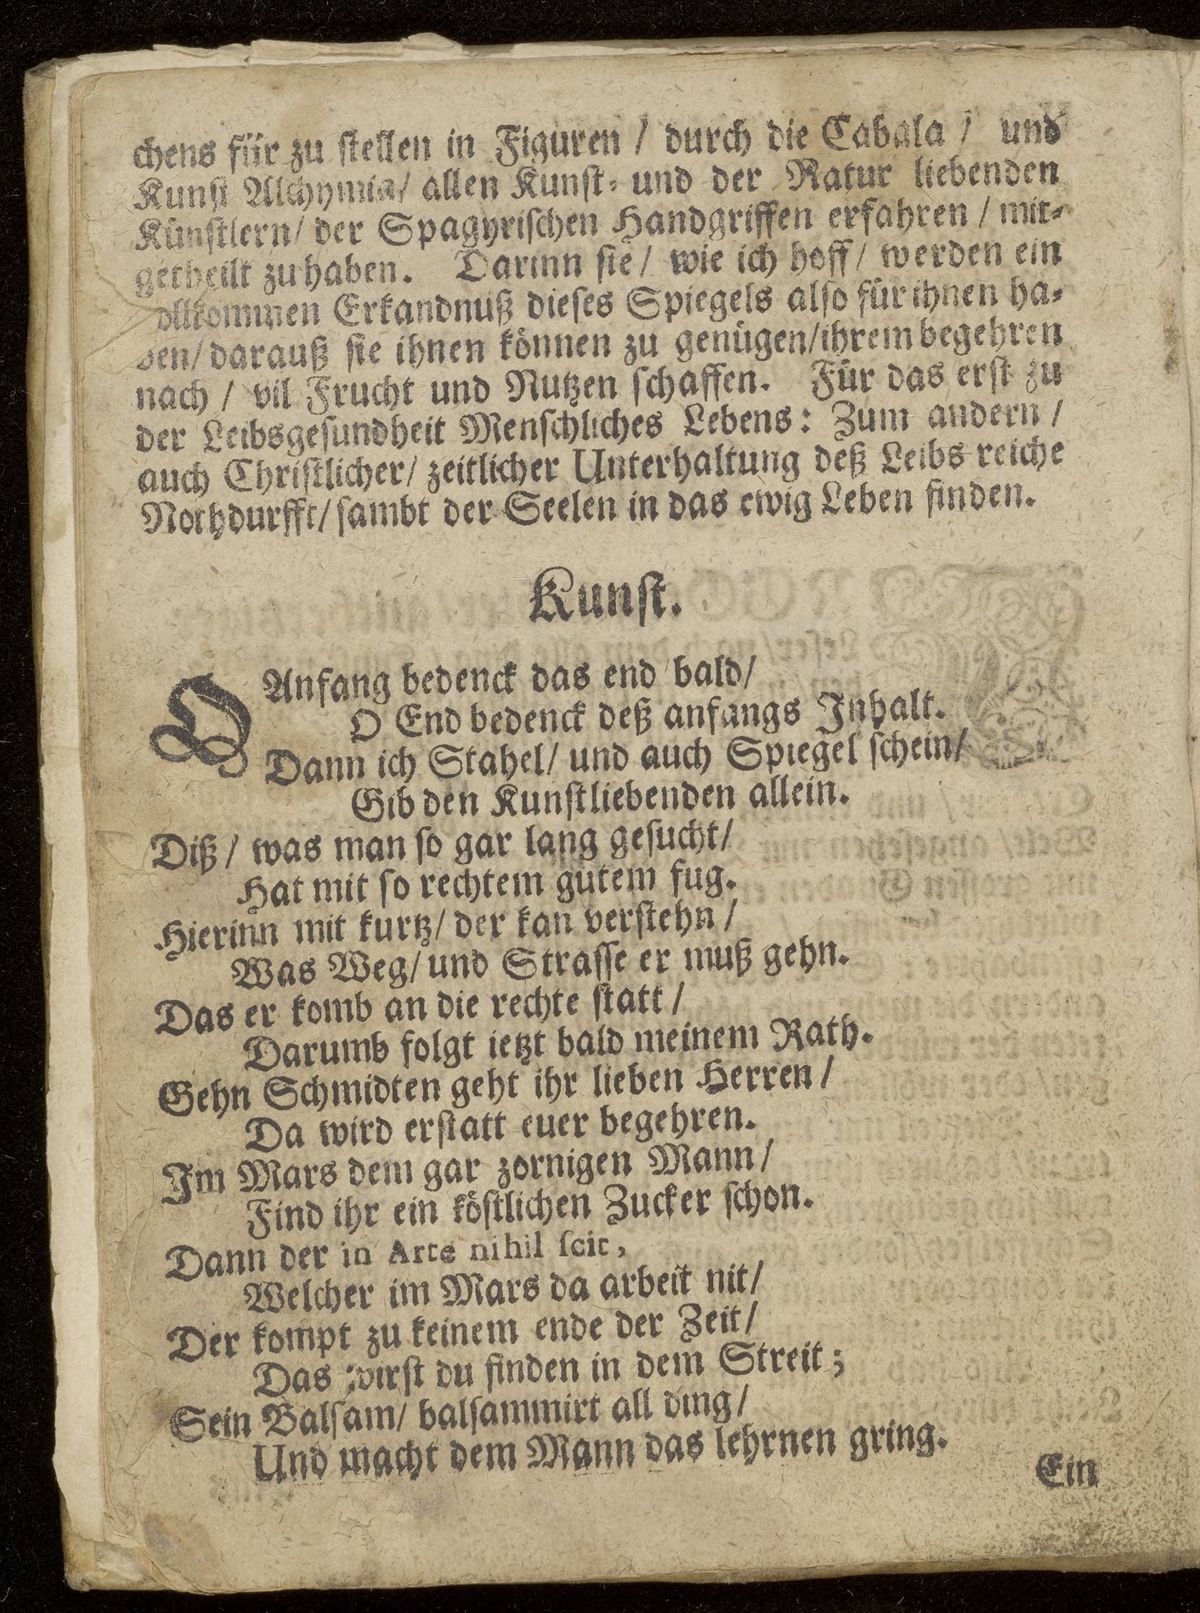 chens für zu stellen in Figuren / durch die Cabala / und
Kunst Alchymia/ allen Kunst- und der Natur liebenden
Künstlern/ der Spagyrischen Handgriffen erfahren / mit-
getheilt zu haben. Darinn sie/ wie ich hoff/ werden ein
ollkommen Erkandnuß dieses Spiegels also für ihnen ha-
ben/ darauß sie ihnen können zu genügen/ ihrem begehren
nach / vil Frucht und Nutzen schaffen. Für das erst zu
der Leibsgesundheit Menschliches Lebens: Zum andern /
auch Christlicher/ zeitlicher Unterhaltung deß Leibs reiche
Nothdurfft/ sambt der Seelen in das ewig Leben finden.
Kunst.
O Anfang bedenck das end bald/
O End bedenck deß anfangs Inhalt.
Dann ich Stahel/ und auch Spiegel schein/
Gib den Kunstliebenden allein.
Diß / was man so gar lang gesucht/
Hat mit so rechtem gutem fug.
Hierinn mit kurtz/ der kan verstehn /
Was Weg/ und Strasse er muß gehn.
Das er komb an die rechte statt /
Darumb folgt ietzt bald meinem Rath.
Gehn Schmidten geht ihr lieben Herren /
Da wird erstatt euer begehren.
Im Mars dem gar zornigen Mann /
Find ihr ein köstlichen Zucker schon.
Dann der in Arte nihil scit,
Welcher im Mars da arbeit nit/
Der kompt zu keinem ende der Zeit/
Das wirst du finden in dem Streit;
Sein Balsam/ balsammirt all ding/
Und macht dem Mann das lehrnen gring.
Ein